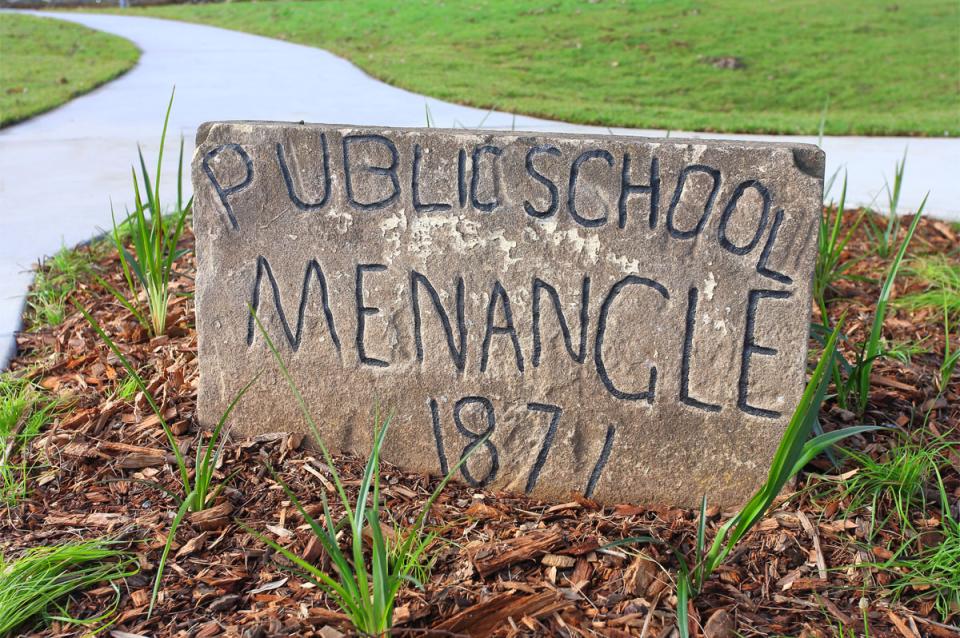 PUBLIC SCHOOL
MENANGLE
1871